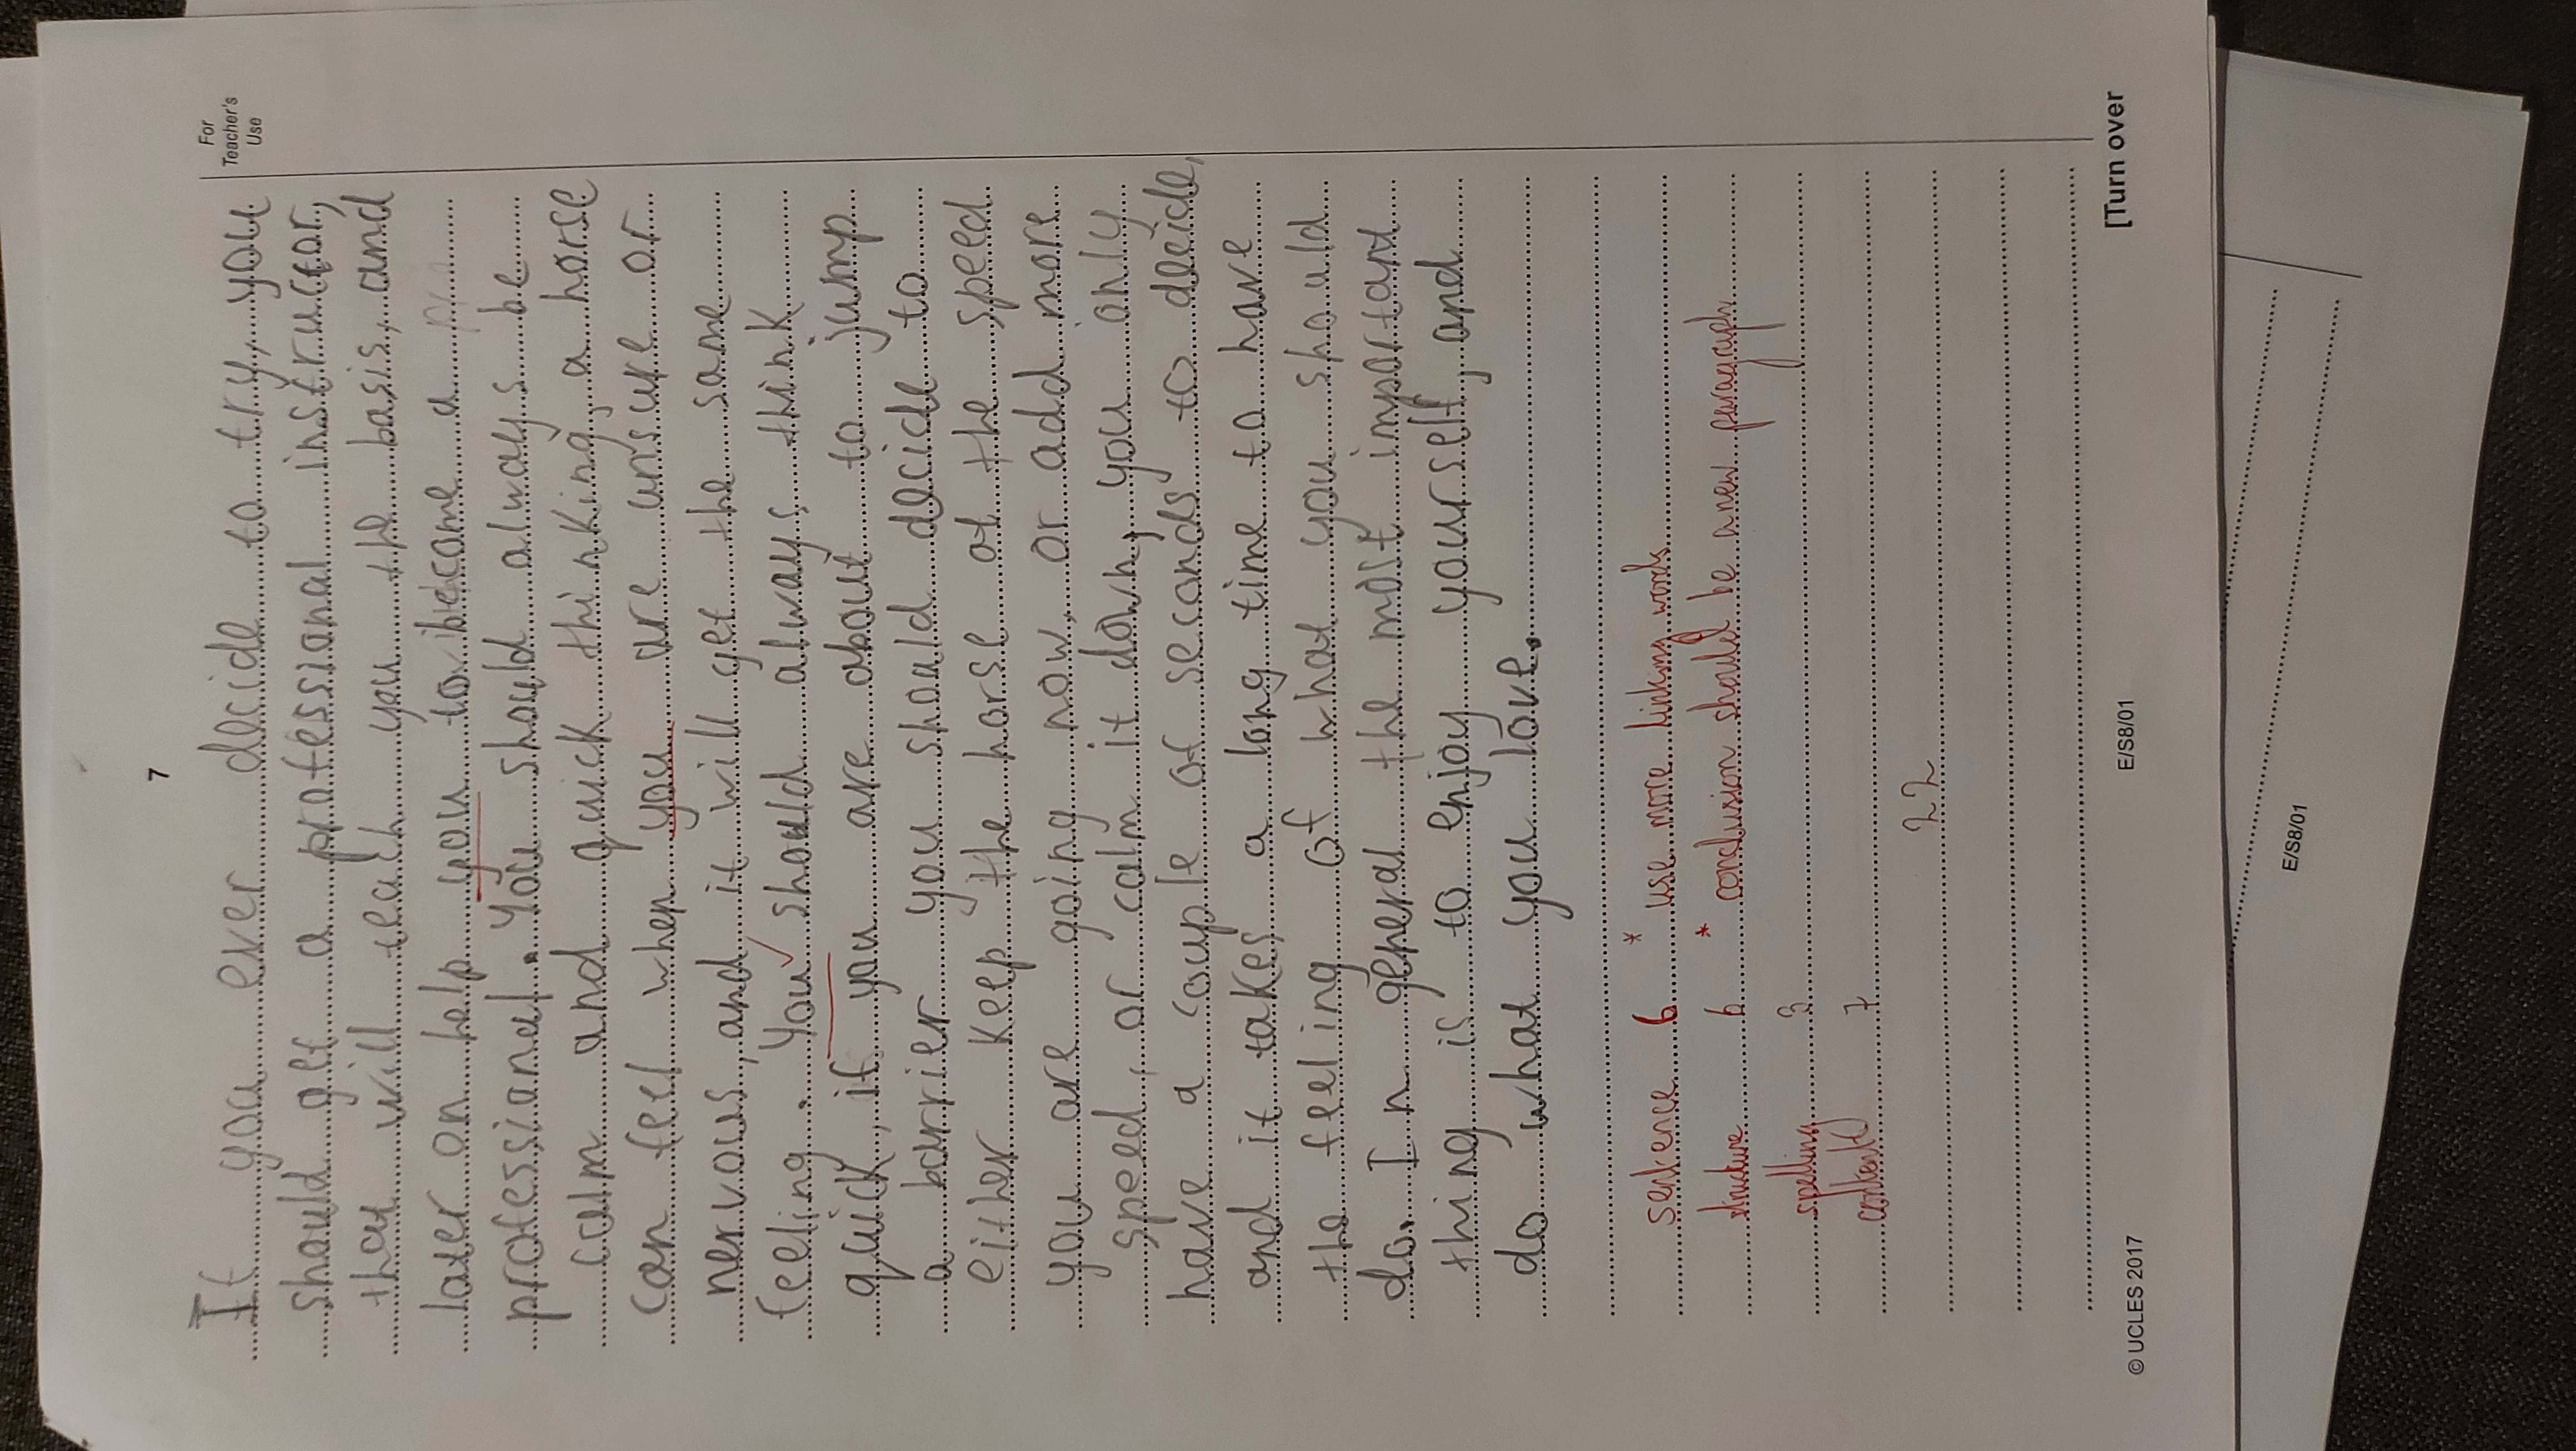 7
For
Teacher's
Use
If you ever decide to try, you
should get a professional instructor,
that will teach you the basis, and
later on help you to become a
professional. You should always be
calm and quick thinking, a horse
can feel when you are unsure or
nervous, and it will get the same
feeling. You should always think
quick, if you are about to jump
a barrier you should decide to
either keep the horse at the speed
you are going now, or add more
speed, or calm it down, you only
have a couple of seconds to decide,
and it takes a long time to have
the feeling of what you should
do. In general the most important
thing is to enjoy yourself, and
do what you love.
sentence 6 * use more linking words
structure 6 * conclusion should be a new paragraph
spelling 3
content 7
22
© UCLES 2017
E/S8/01
[Turn over
E/S8/01